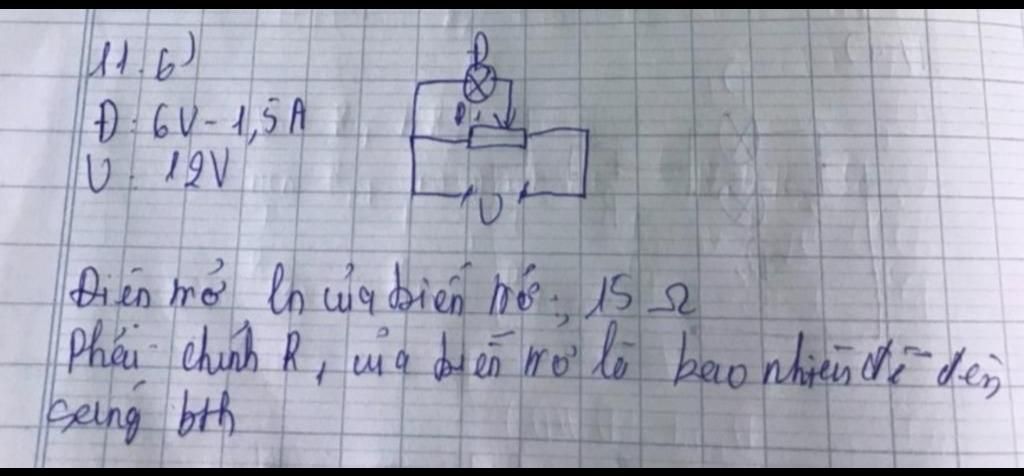 11.6)
Đ: 6V - 1,5A
U: 12V
Đ
R₁
U
Điện trở ln của biến trở: 15 Ω
Phải chỉnh R₁ của biến trở là bao nhiêu để đèn
sáng bth